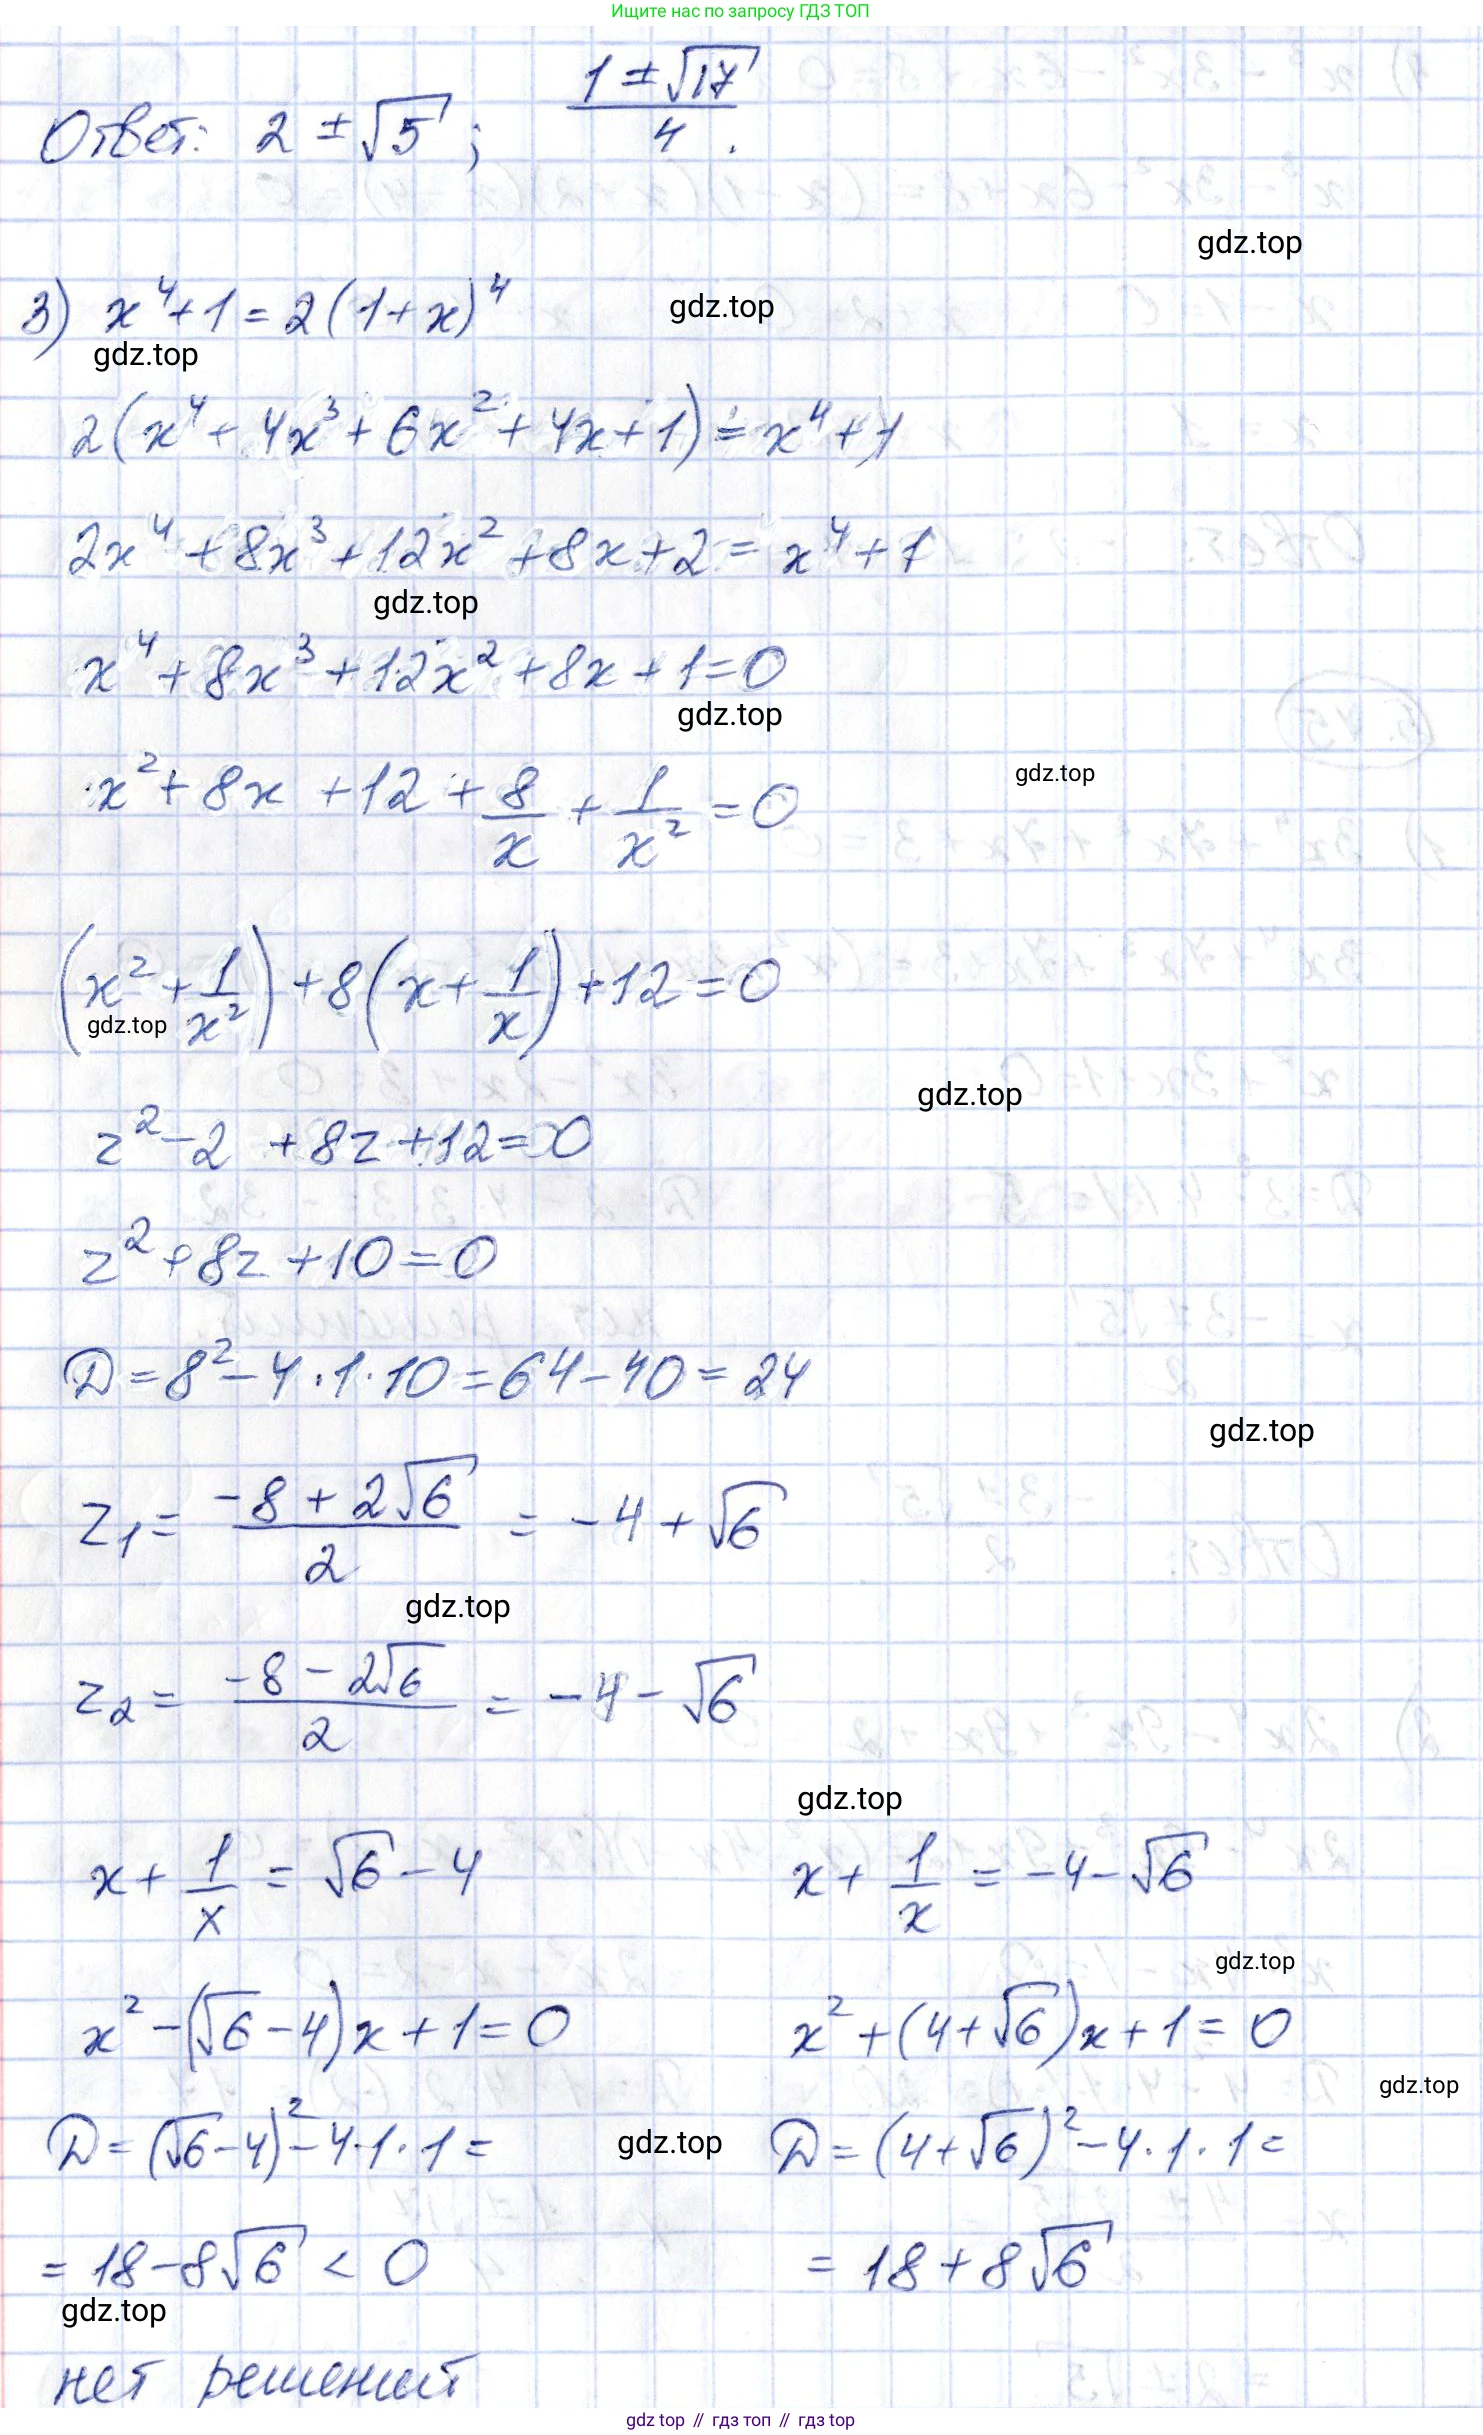 Ищите нас по запросу ГДЗ ТОП
Ответ: 2 ± √5 ; (1 ± √17)/4 .
gdz.top
3) x⁴ + 1 = 2(1 + x)⁴
gdz.top
gdz.top
2(x⁴ + 4x³ + 6x² + 4x + 1) = x⁴ + 1
2x⁴ + 8x³ + 12x² + 8x + 2 = x⁴ + 1
gdz.top
x⁴ + 8x³ + 12x² + 8x + 1 = 0
gdz.top
gdz.top
x² + 8x + 12 + 8/x + 1/x² = 0
(x² + 1/x²) + 8(x + 1/x) + 12 = 0
gdz.top
gdz.top
z² - 2 + 8z + 12 = 0
z² + 8z + 10 = 0
D = 8² - 4 · 1 · 10 = 64 - 40 = 24
gdz.top
z₁ = (-8 + 2√6)/2 = -4 + √6
gdz.top
z₂ = (-8 - 2√6)/2 = -4 - √6
gdz.top
x + 1/x = √6 - 4 x + 1/x = -4 - √6
gdz.top
x² - (√6 - 4)x + 1 = 0 x² + (4 + √6)x + 1 = 0
gdz.top
D = (√6 - 4)² - 4 · 1 · 1 = gdz.top D = (4 + √6)² - 4 · 1 · 1 =
= 18 - 8√6 < 0 = 18 + 8√6
gdz.top
нет решений
gdz top // гдз топ // гдз top